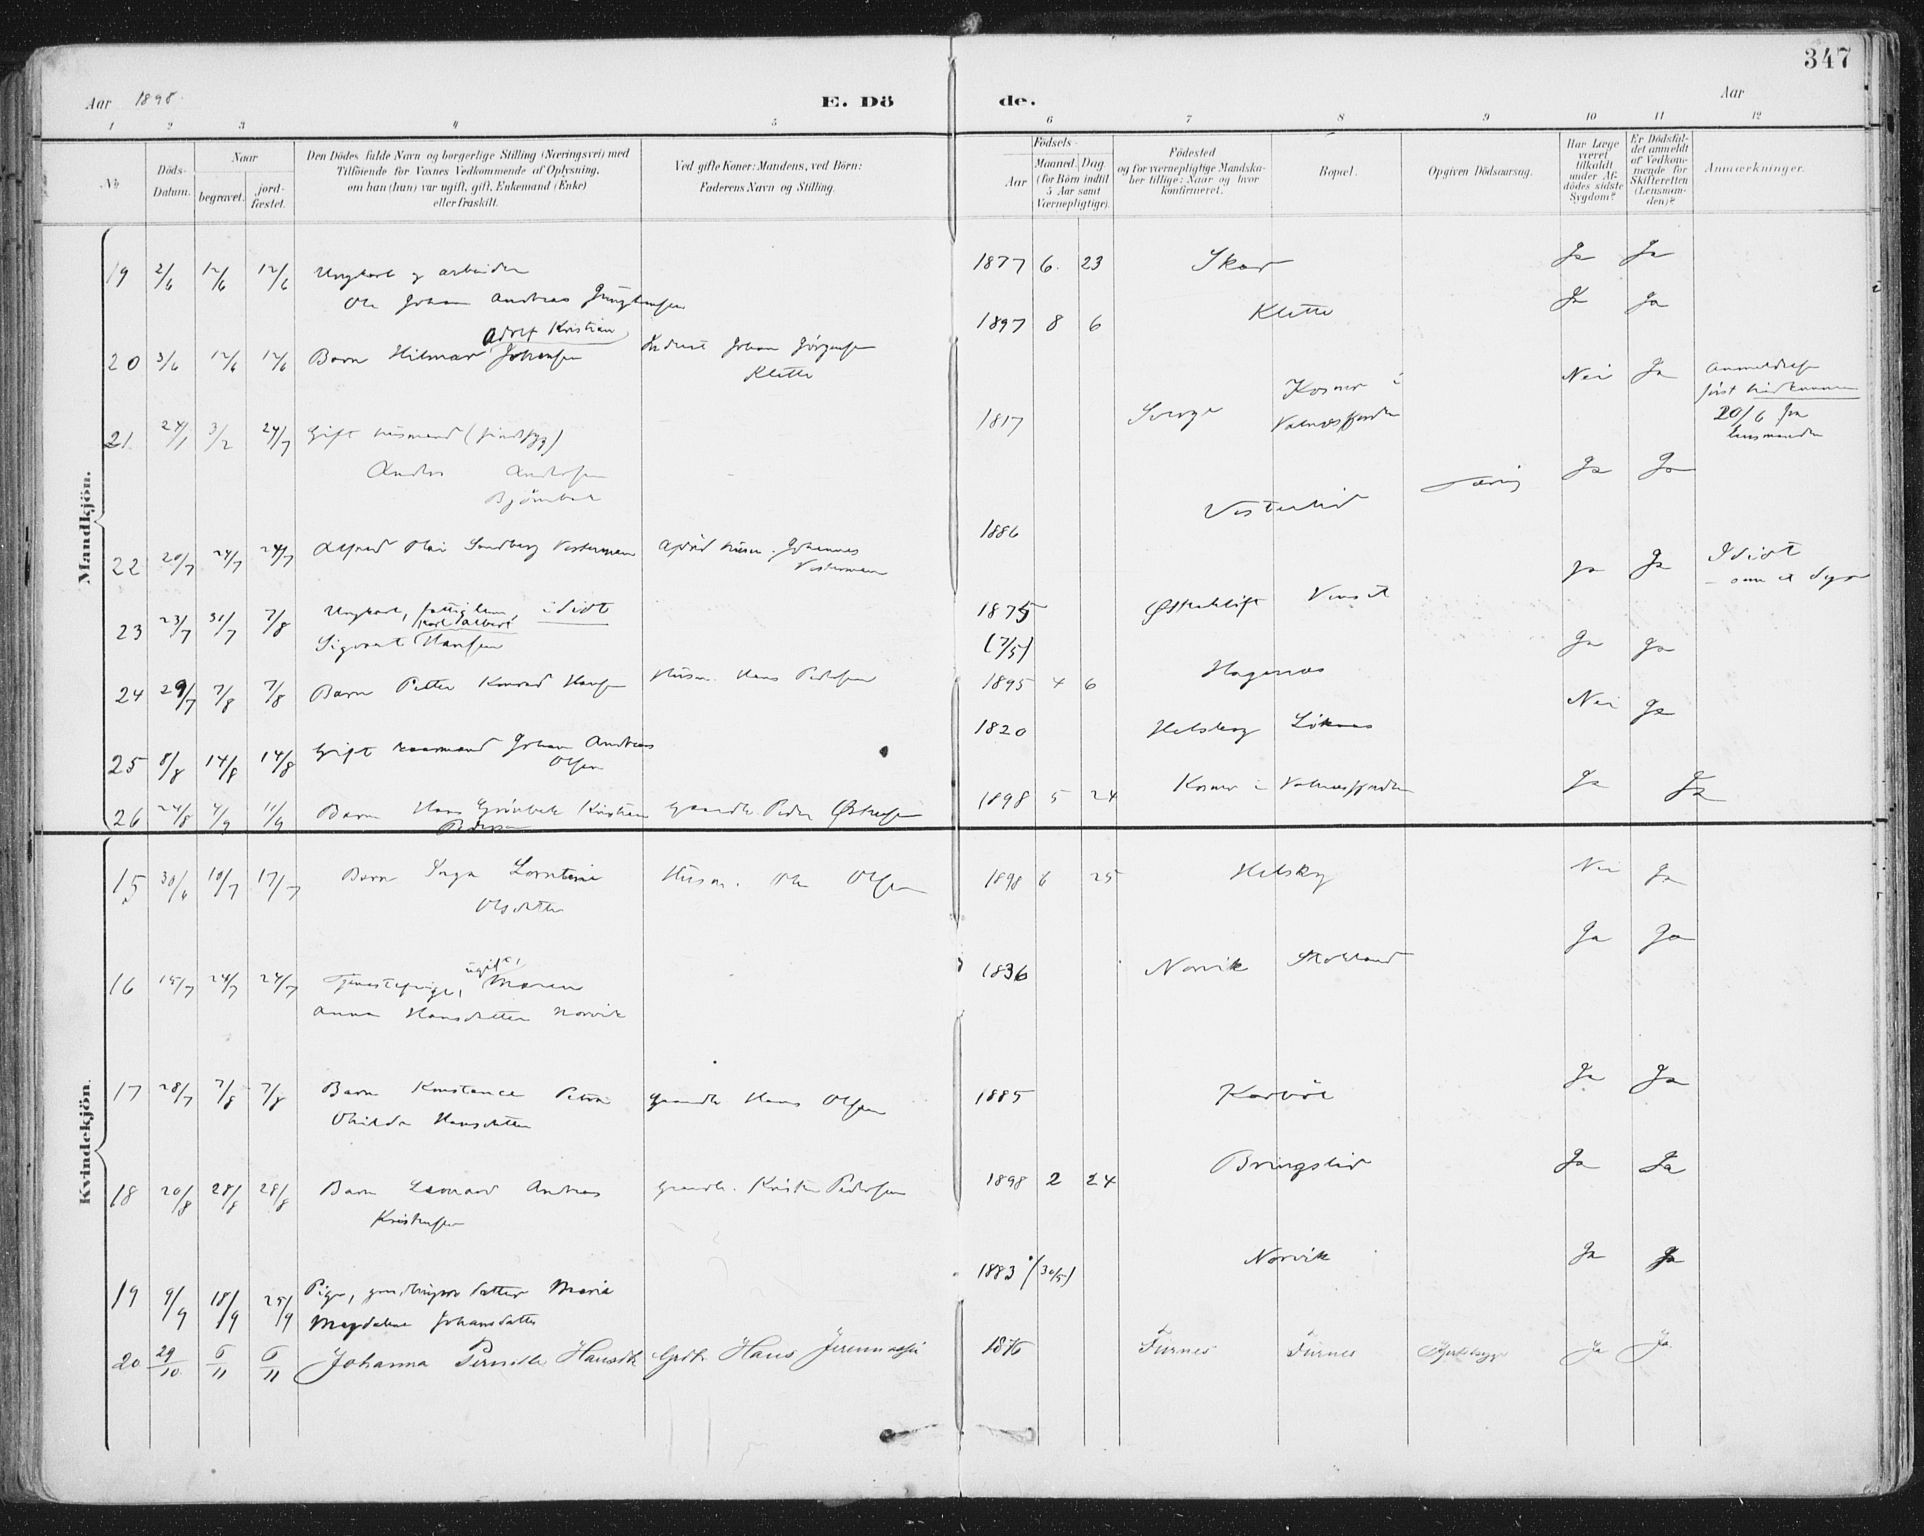 347
Aar 1898.
E. Dö de.
Aar
1 2 3 4 5 6 7 8 9 10 11 12
No
Döds-Datum.
Naar
begravet.
jord-fæstet.
Den Dödes fulde Navn og borgerlige Stilling (Næringsvei) med
Tilföiende for Voxnes Vedkommende af Oplysning,
om han (hun) var ugift, gift, Enkemand (Enke)
eller fraskilt.
Ved gifte Koner: Mandens, ved Börn:
Faderens Navn og Stilling.
Födsels-
Aar
Maaned. Dag
(for Börn indtil
5 Aar samt
Værnepligtige).
Födested
og for værnepligtige Mandska-
ber tillige: Naar og hvor
konfirmeret.
Bopæl.
Opgiven Dödsaarsag.
Har Læge
været
tilkaldt
under Af-
dödes sidste
Sygdom?
Er Dödsfal-
det anmeldt
af Vedkom-
mende for
Skifteretten
(Lensman-
den)?
Anmærkninger.
Mandkjön.
19 2/6 12/6 12/6 Ungkarl og arbeider 1877 6. 23 Skar Ja Ja
Ole Johan Andreas
Adolf Kristian 1897 8 6 Klette Ja Ja
20 3/6 12/6 12/6 Barn Hilmar Johansen Johan Jörgensen
Klette
21. 24/1 3/2 24/7 Gift husmand (sindssyg) 1817 Sverge Kosmo i Valnesfjorden Nei Ja
20/6 fra
lensmanden
Anders Andersen
Ja Ja
22 20/7 24/7 24/7 Alfred Olai Sundberg Vesterman Johannes
Vesterman 1886 Vesterlid
ja Ja Idiot
23 23/7 31/7 7/8 Ungkarl, fattiglem, idiot 1875
Karl Albert
Sigvart Hansen (7/5)
Ja Ja
24 29/7 7/8 7/8 Barn Petter Konrad Hansen Husm. Hans Pedersen 1895 4 6 Hagenes
Nei Ja
25 8/8 14/8 14/8 Gift Johan Andreas
Olsen 1820
26 24/8 4/9 11/9 Barn Hans Grönbek Kristian Gaardbr. Peder
Pedersen 1898 5 24 Kosmo i Valnesfjorden Ja Ja
Kvindekjön.
15 30/6 10/7 17/7 Barn Inga Lorntine Husm. Ole Olsen 1898 6 25 Nei Ja
Olsdatter
16 15/7 24/7 24/7 Tjenestepige, ugift, Maren 1836 Norvik Ja Ja
Anna Hansdatter Norvik
17 28/7 7/8 7/8 Barn Konstance Petra Gaardbr. Hans Olsen 1885 Ja Ja
Hansdatter
18 20/8 28/8 28/8 Barn Leonard Andreas Gaardbr. Kristen Pedersen 1898 2 24 Bringslid Ja Ja
Kristensen
19 9/9 18/9 25/9 Pige, datter Maria 1883 (30/5) Norvik Ja Ja
Magdalene Johansdatter
20 29/10 6/11 6/11 Johanna Pernille Hansdtr. Grdbr. Hans 1876 Furnes Furnes Ja Ja